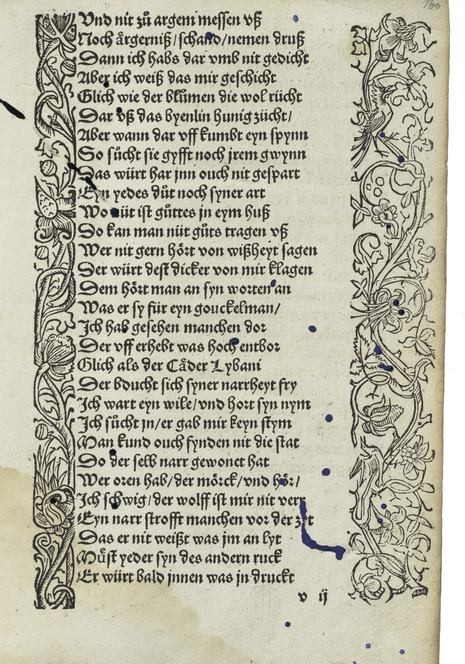 160
Vnd nit zů argem messen vß
Noch ärgerniß/schand/nemen druß
Dann ich habs dar vmb nit gedicht
Aber ich weiß das mir geschicht
Glich wie der blůmen die wol rücht
Dar vß das byenlin hunig zücht/
Aber wann dar vff kumbt eyn spynn
So sůcht sie gyfft noch jrem gwynn
Das würt har jnn ouch nit gespart
Eyn yedes důt noch syner art
Wo nüt ist gůttes jn eym huß
Do kan man nüt gůts tragen vß
Wer nit gern hört von wißheyt sagen
Der würt dest dicker von mir klagen
Dem hört man an syn worten an
Was er sy für eyn gouckelman/
Ich hab gesehen manchen dor
Der vff erhebt was hoch entbor
Glich als der Cåder Lybani
Der bducht sich syner narrheyt fry
Ich wart eyn wile/vnd hort syn nym
Ich sůcht jn/er gab mir keyn stym
Man kund ouch fynden nit die stat
Do der selb narr gewonet hat
Wer oren hab/der mörck/vnd hör/
Ich schwig/der wolff ist mir nit verr
Eyn narr strofft manchen vor der zyt
Das er nit weißt was jm an lyt
Můst yeder syn des andern ruck
Er würt bald jnnen was jn druckt
v ij